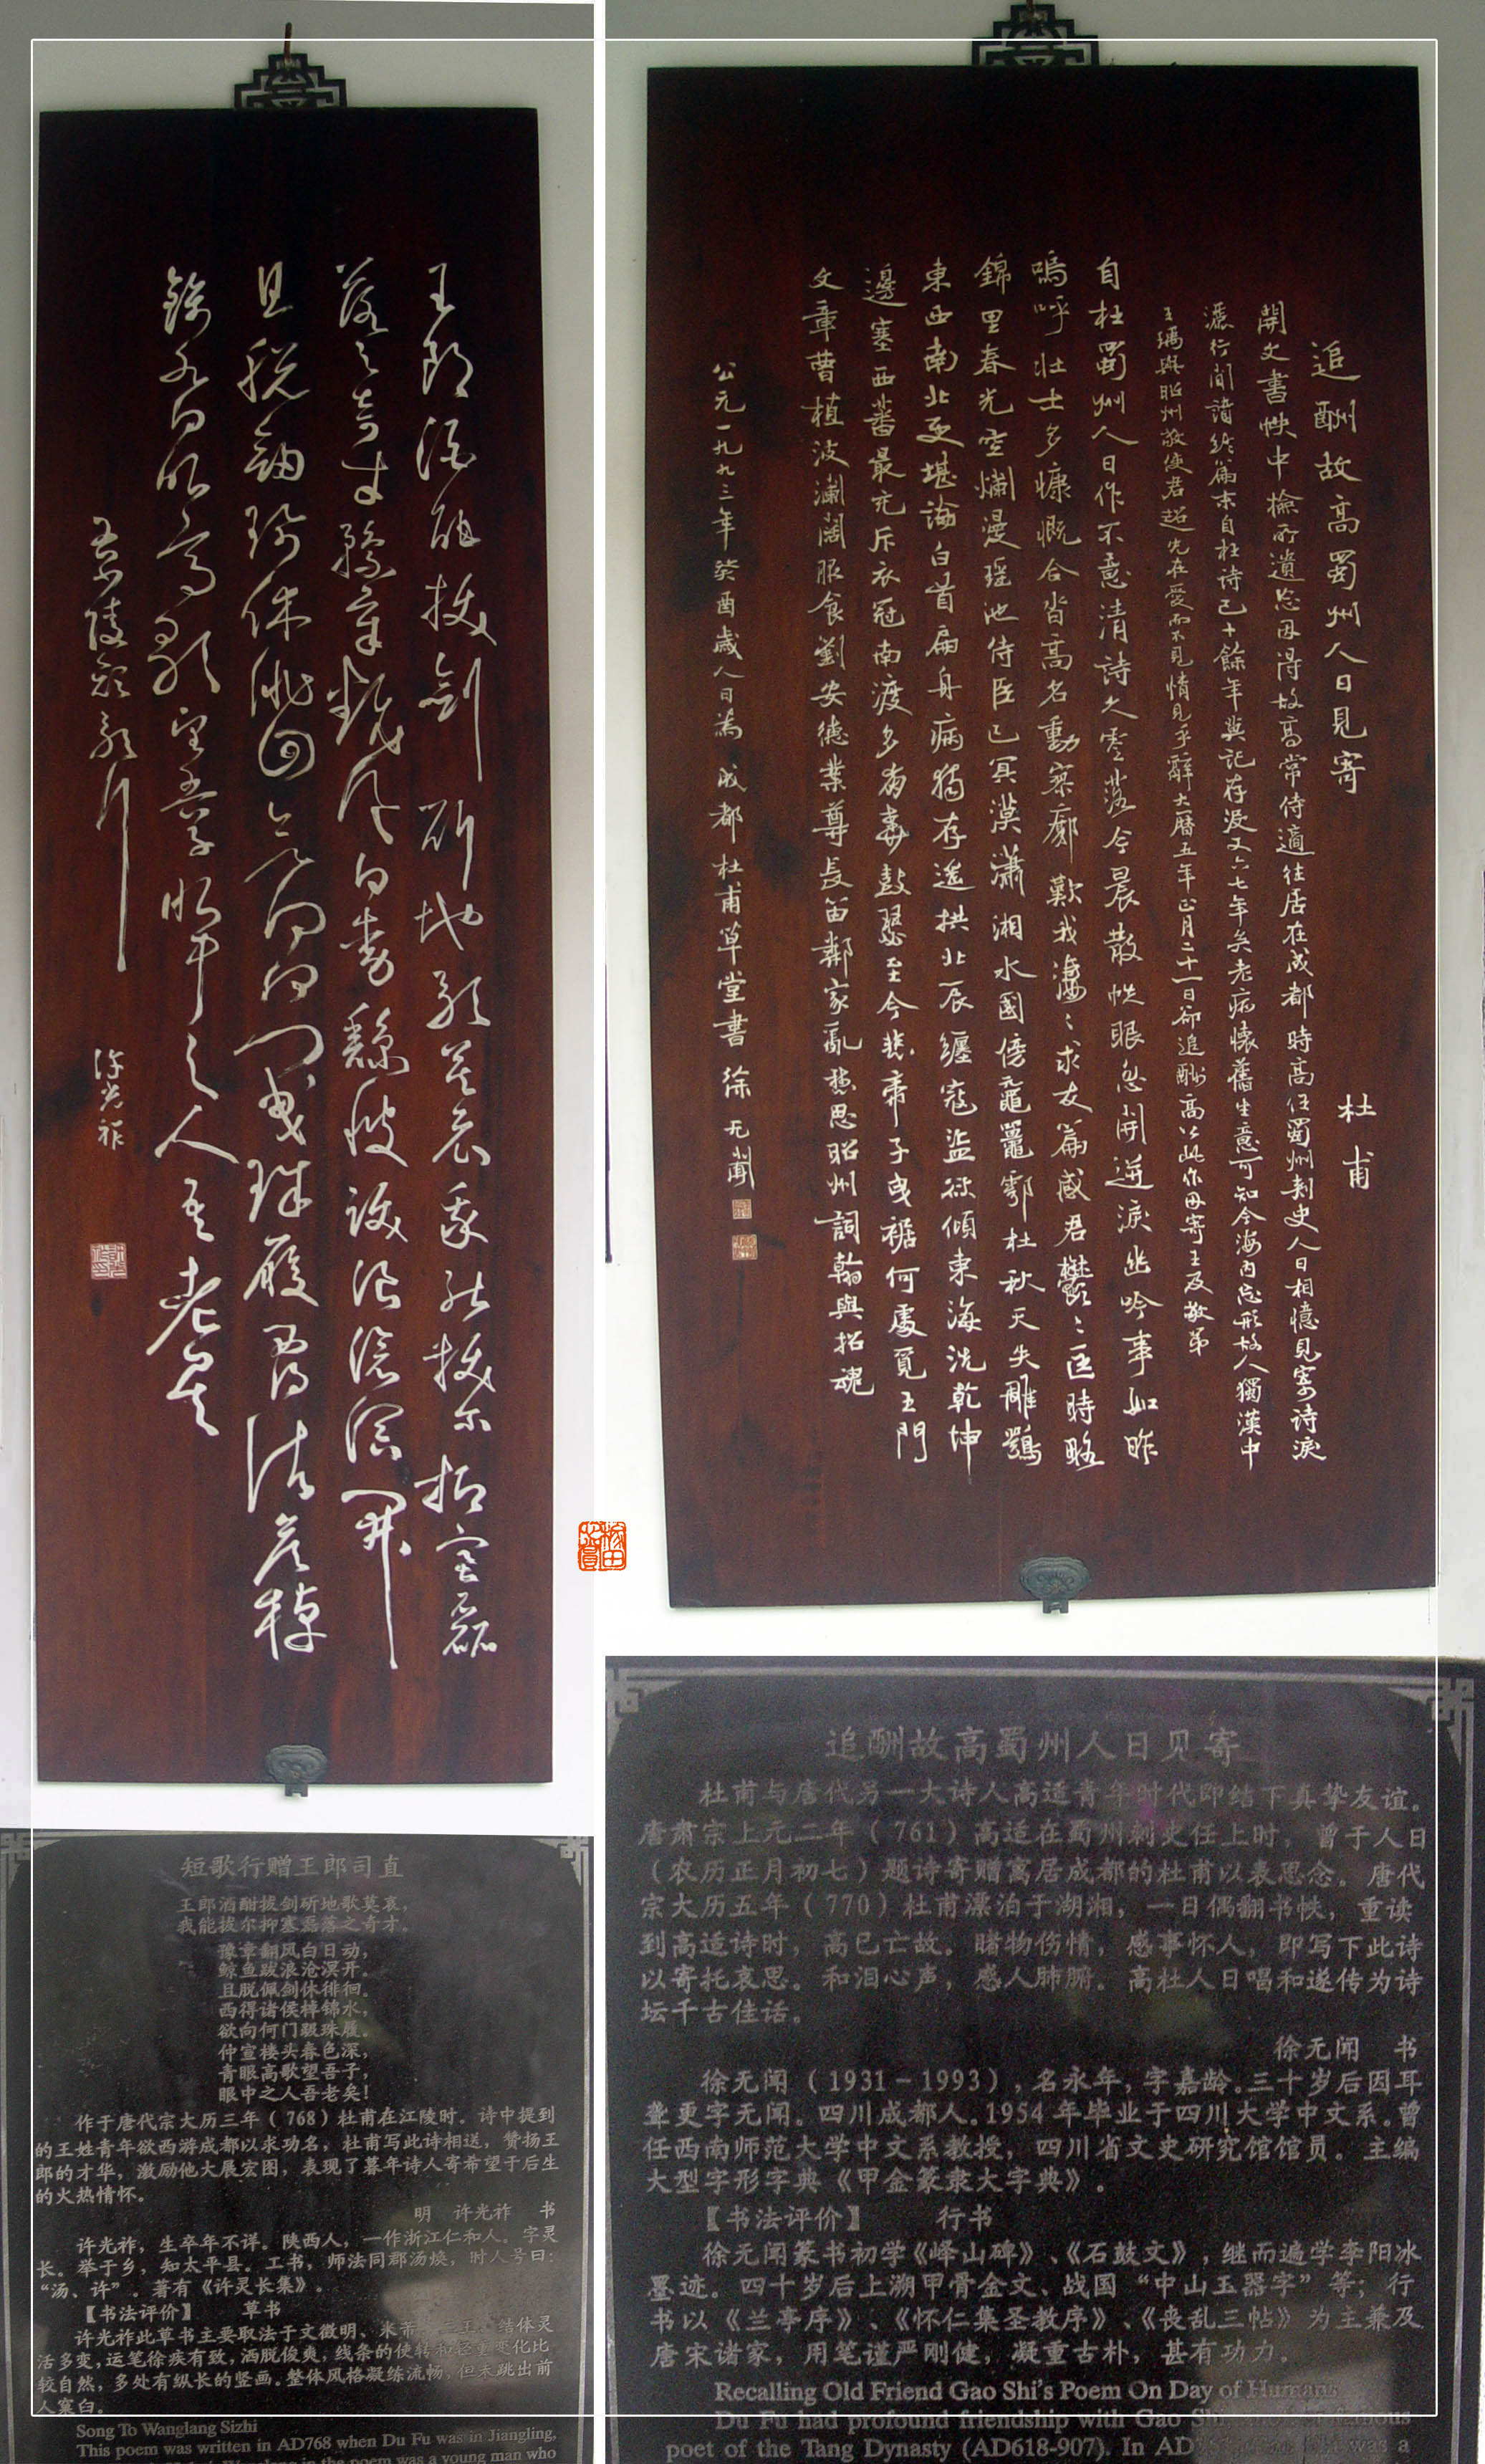 王郎酒酣拔劍斫地歌莫哀我能拔尔抑塞磊
落之奇才豫章翻風白日動鯨魚跋浪滄溟開
且脱劍珮休徘徊欲向何門曳珠履西得諸侯棹
錦水眼高歌望吾子眼中之人吾老矣
陵短歌行
許光祚
短歌行赠王郎司直
王郎酒酣拔剑斫地歌莫哀，
我能拔尔抑塞磊落之奇才。
豫章翻风白日动，
鲸鱼跋浪沧溟开。
且脱佩剑休徘徊。
西得诸侯棹锦水，
欲向何门趿珠履。
仲宣楼头春色深，
青眼高歌望吾子，
眼中之人吾老矣！
作于唐代宗大历三年（768）杜甫在江陵时。诗中提到
的王姓青年欲西游成都以求功名，杜甫写此诗相送，赞扬王
郎的才华，激励他大展宏图，表现了暮年诗人寄希望于后生
的火热情怀。
明 许光祚 书
许光祚，生卒年不详。陕西人，一作浙江仁和人。字灵
长。举于乡，知太平县。工书，师法同郡汤焕，时人号曰：
“汤、许”。著有《许灵长集》。
【书法评价】 草书
许光祚此草书主要取法于文徵明、米芾、二王。结体灵
活多变，运笔徐疾有致，洒脱俊爽，线条的使转和轻重变化比
较自然，多处有纵长的竖画。整体风格凝练流畅，但未跳出前
人窠臼。
Song To Wanglang Sizhi
This poem was written in AD768 when Du Fu was in Jiangling,
in the poem was a young man who
追酬故高蜀州人日見寄 杜甫
開文書帙中檢所遺忘因得故高常侍適往居在成都時高任蜀州刺史人日相憶見寄詩淚
灑行間讀終篇末自枉詩已十餘年莫記存沒又六七年矣老病懷舊生意可知今海內忘形故人獨漢中
王瑀與昭州敬使君超先在愛而不見情見乎辭大曆五年正月二十一日卻追酬高公此作因寄王及敬弟
自枉蜀州人日作不意清詩久零落今晨散帙眼忽開迸淚幽吟事如昨
嗚呼壯士多慷慨合沓高名動寥廓歎我淒〻求友篇感君鬱〻匡時略
錦里春光空爛漫瑶池侍臣已冥漠瀟湘水國傍黿鼉鄠杜秋天失雕鶚
東西南北更堪論白首扁舟病獨存遥拱北辰纏寇盜欲傾東海洗乾坤
邊塞西蕃最充斥衣冠南渡多崩奔鼓瑟至今悲帝子曳裾何處覓王門
文章曹植波瀾闊服食劉安德業尊長笛鄰家亂愁思昭州詞翰與招魂
公元一九九三年癸酉歲人日為 成都杜甫草堂書 徐无聞
追酬故高蜀州人日见寄
杜甫与唐代另一大诗人高适青年时代即结下真挚友谊。
唐肃宗上元二年（761）高适在蜀州刺史任上时，曾于人日
（农历正月初七）题诗寄赠寓居成都的杜甫以表思念。唐代
宗大历五年（770）杜甫漂泊于湖湘，一日偶翻书帙，重读
到高适诗时，高已亡故。睹物伤情，感事怀人，即写下此诗
以寄托哀思。和泪心声，感人肺腑。高杜人日唱和遂传为诗
坛千古佳话。
徐无闻 书
徐无闻（1931－1993），名永年，字嘉龄。三十岁后因耳
聋更字无闻。四川成都人。1954年毕业于四川大学中文系。曾
任西南师范大学中文系教授，四川省文史研究馆馆员。主编
大型字形字典《甲金篆隶大字典》。
【书法评价】 行书
徐无闻篆书初学《峄山碑》、《石鼓文》，继而遍学李阳冰
墨迹。四十岁后上溯甲骨金文、战国“中山玉器字”等；行
书以《兰亭序》、《怀仁集圣教序》、《丧乱三帖》为主兼及
唐宋诸家，用笔谨严刚健，凝重古朴，甚有功力。
Recalling Old Friend Gao Shi's Poem On Day of Humans
Du Fu had profound friendship with Gao famous
poet of the Tang Dynasty (AD618-907). In AD was a